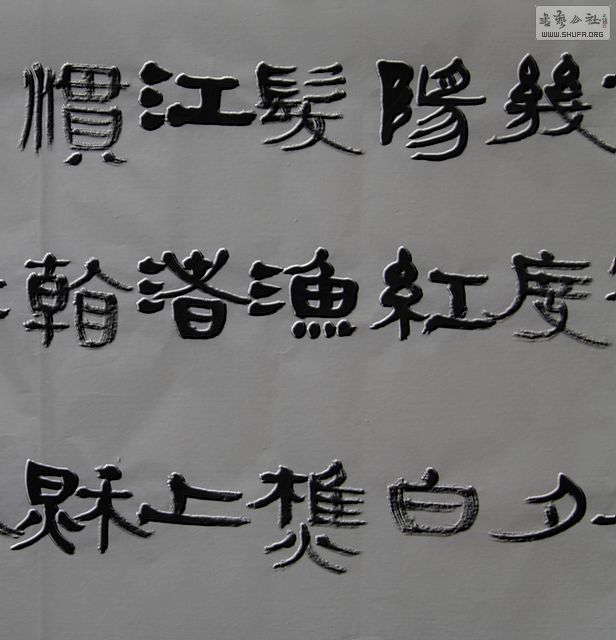 幾度夕
陽紅白
髮漁樵
江渚上
慣看秋
書藝公社
WWW.SHUFA.ORG